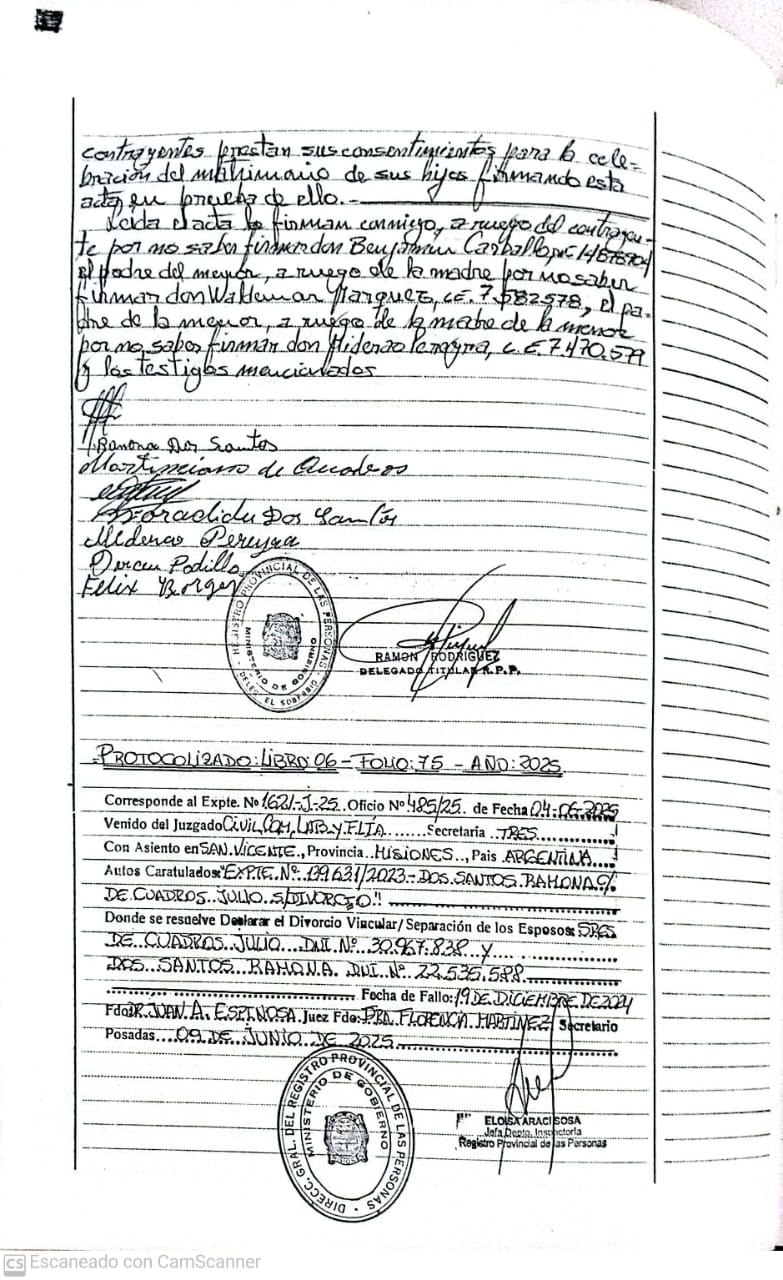 contrayentes prestan sus consentimientos para la cele-
bración del matrimonio de sus hijos firmando esta
acta en prueba de ello.-
Leida el acta la firman conmigo, a ruego del contrayen-
te por no saber firmar don Benjamin Carballo
el padre del menor, a ruego de la madre por no saber
firmar don Waldemar Marquez, C.E. 7.582578, el pa-
dre de la menor, a ruego de la madre de la menor
por no saber firmar don Pereyra, C.E. 7.470.579
y los testigos mencionados
Ramona Dos Santos
Martiniano de Cuadros
Dos Santos
Pereyra
Padillo
Felix Borges
REGISTRO PROVINCIAL DE LAS PERSONAS
MINISTERIO DE GOBIERNO
DELEG. EL SOBERBIO
RAMON RODRIGUEZ
DELEGADO TITULAR R.P.P.
PROTOCOLIZADO: LIBRO: 06 - FOLIO: 75 - AÑO: 2025
Corresponde al Expte. Nº 1621-J-25 Oficio Nº 485/25 de Fecha 04-06-2025
Venido del Juzgado CIVIL, COM, LAB. Y FLIA Secretaria TRES
Con Asiento en SAN VICENTE, Provincia MISIONES, Pais ARGENTINA
Autos Caratulados: "EXPTE. Nº 139631/2023 - DOS SANTOS RAMONA C/
DE CUADROS JULIO S/DIVORCIO"
Donde se resuelve Declarar el Divorcio Vincular/Separación de los Esposos: SRES
DE CUADROS JULIO DNI. Nº 30.967.838 Y
DOS SANTOS RAMONA. DNI. Nº 22.535.588
Fecha de Fallo: 19 DE DICIEMBRE DE 2024
Fdo: DR. JUAN A. ESPINOSA Juez Fdo: DRA. FLORENCIA MARTINEZ Secretario
Posadas 09 DE JUNIO DE 2025
DIRECC. GRAL. DEL REGISTRO PROVINCIAL DE LAS PERSONAS
MINISTERIO DE GOBIERNO
ELOISA ARACI SOSA
Jefa Depto. Inspectoria
Registro Provincial de las Personas
CS Escaneado con CamScanner